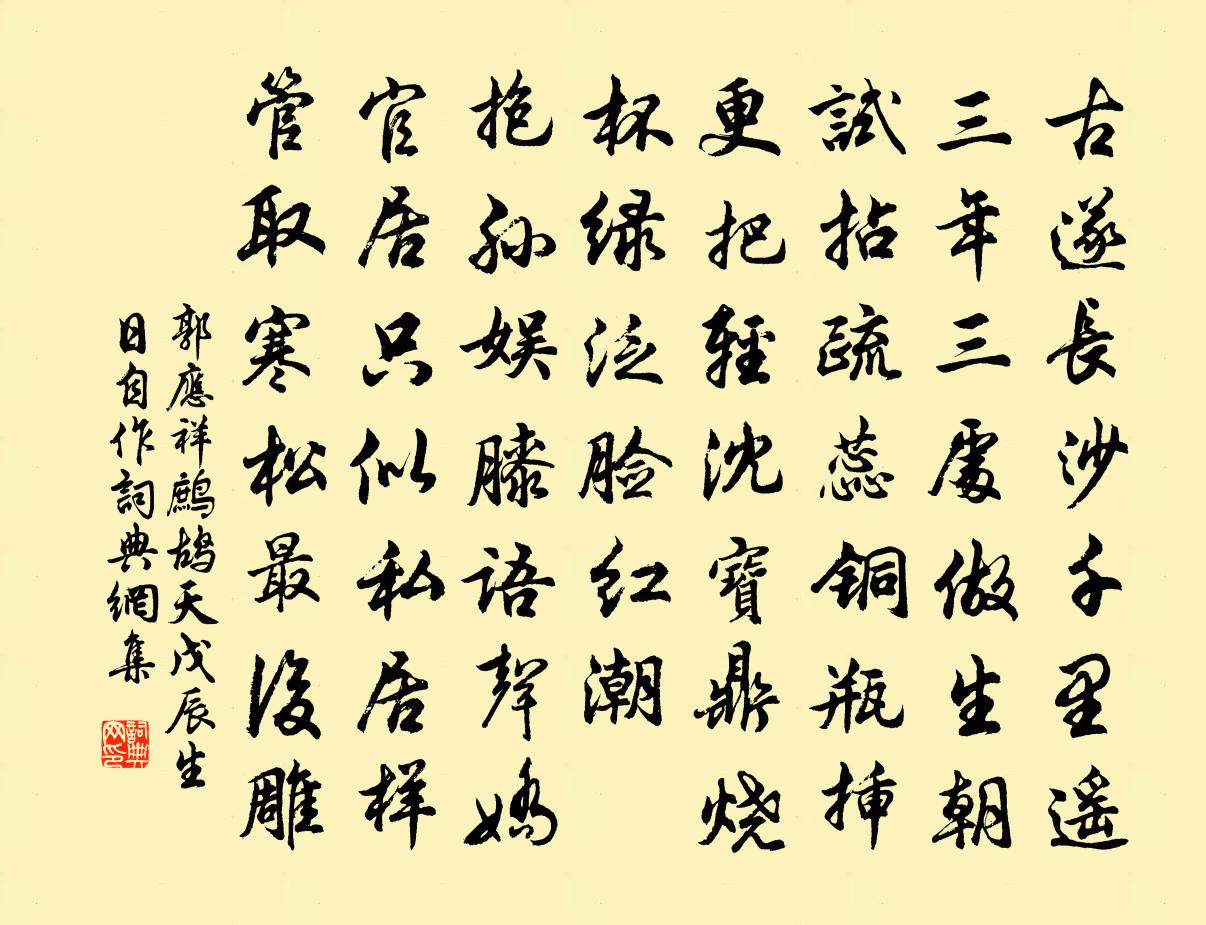 古遂長沙千里遥
三年三處做生朝
試拈疏蕊銅瓶揷
更把輕沈寶鼎烧
杯绿泛脸红潮
抱孙娱膝语聲嬌
官居只似私居样
管取寒松最後雕
郭應祥鷓鴣天戊辰生
日自作詞典網集
詞典
网印